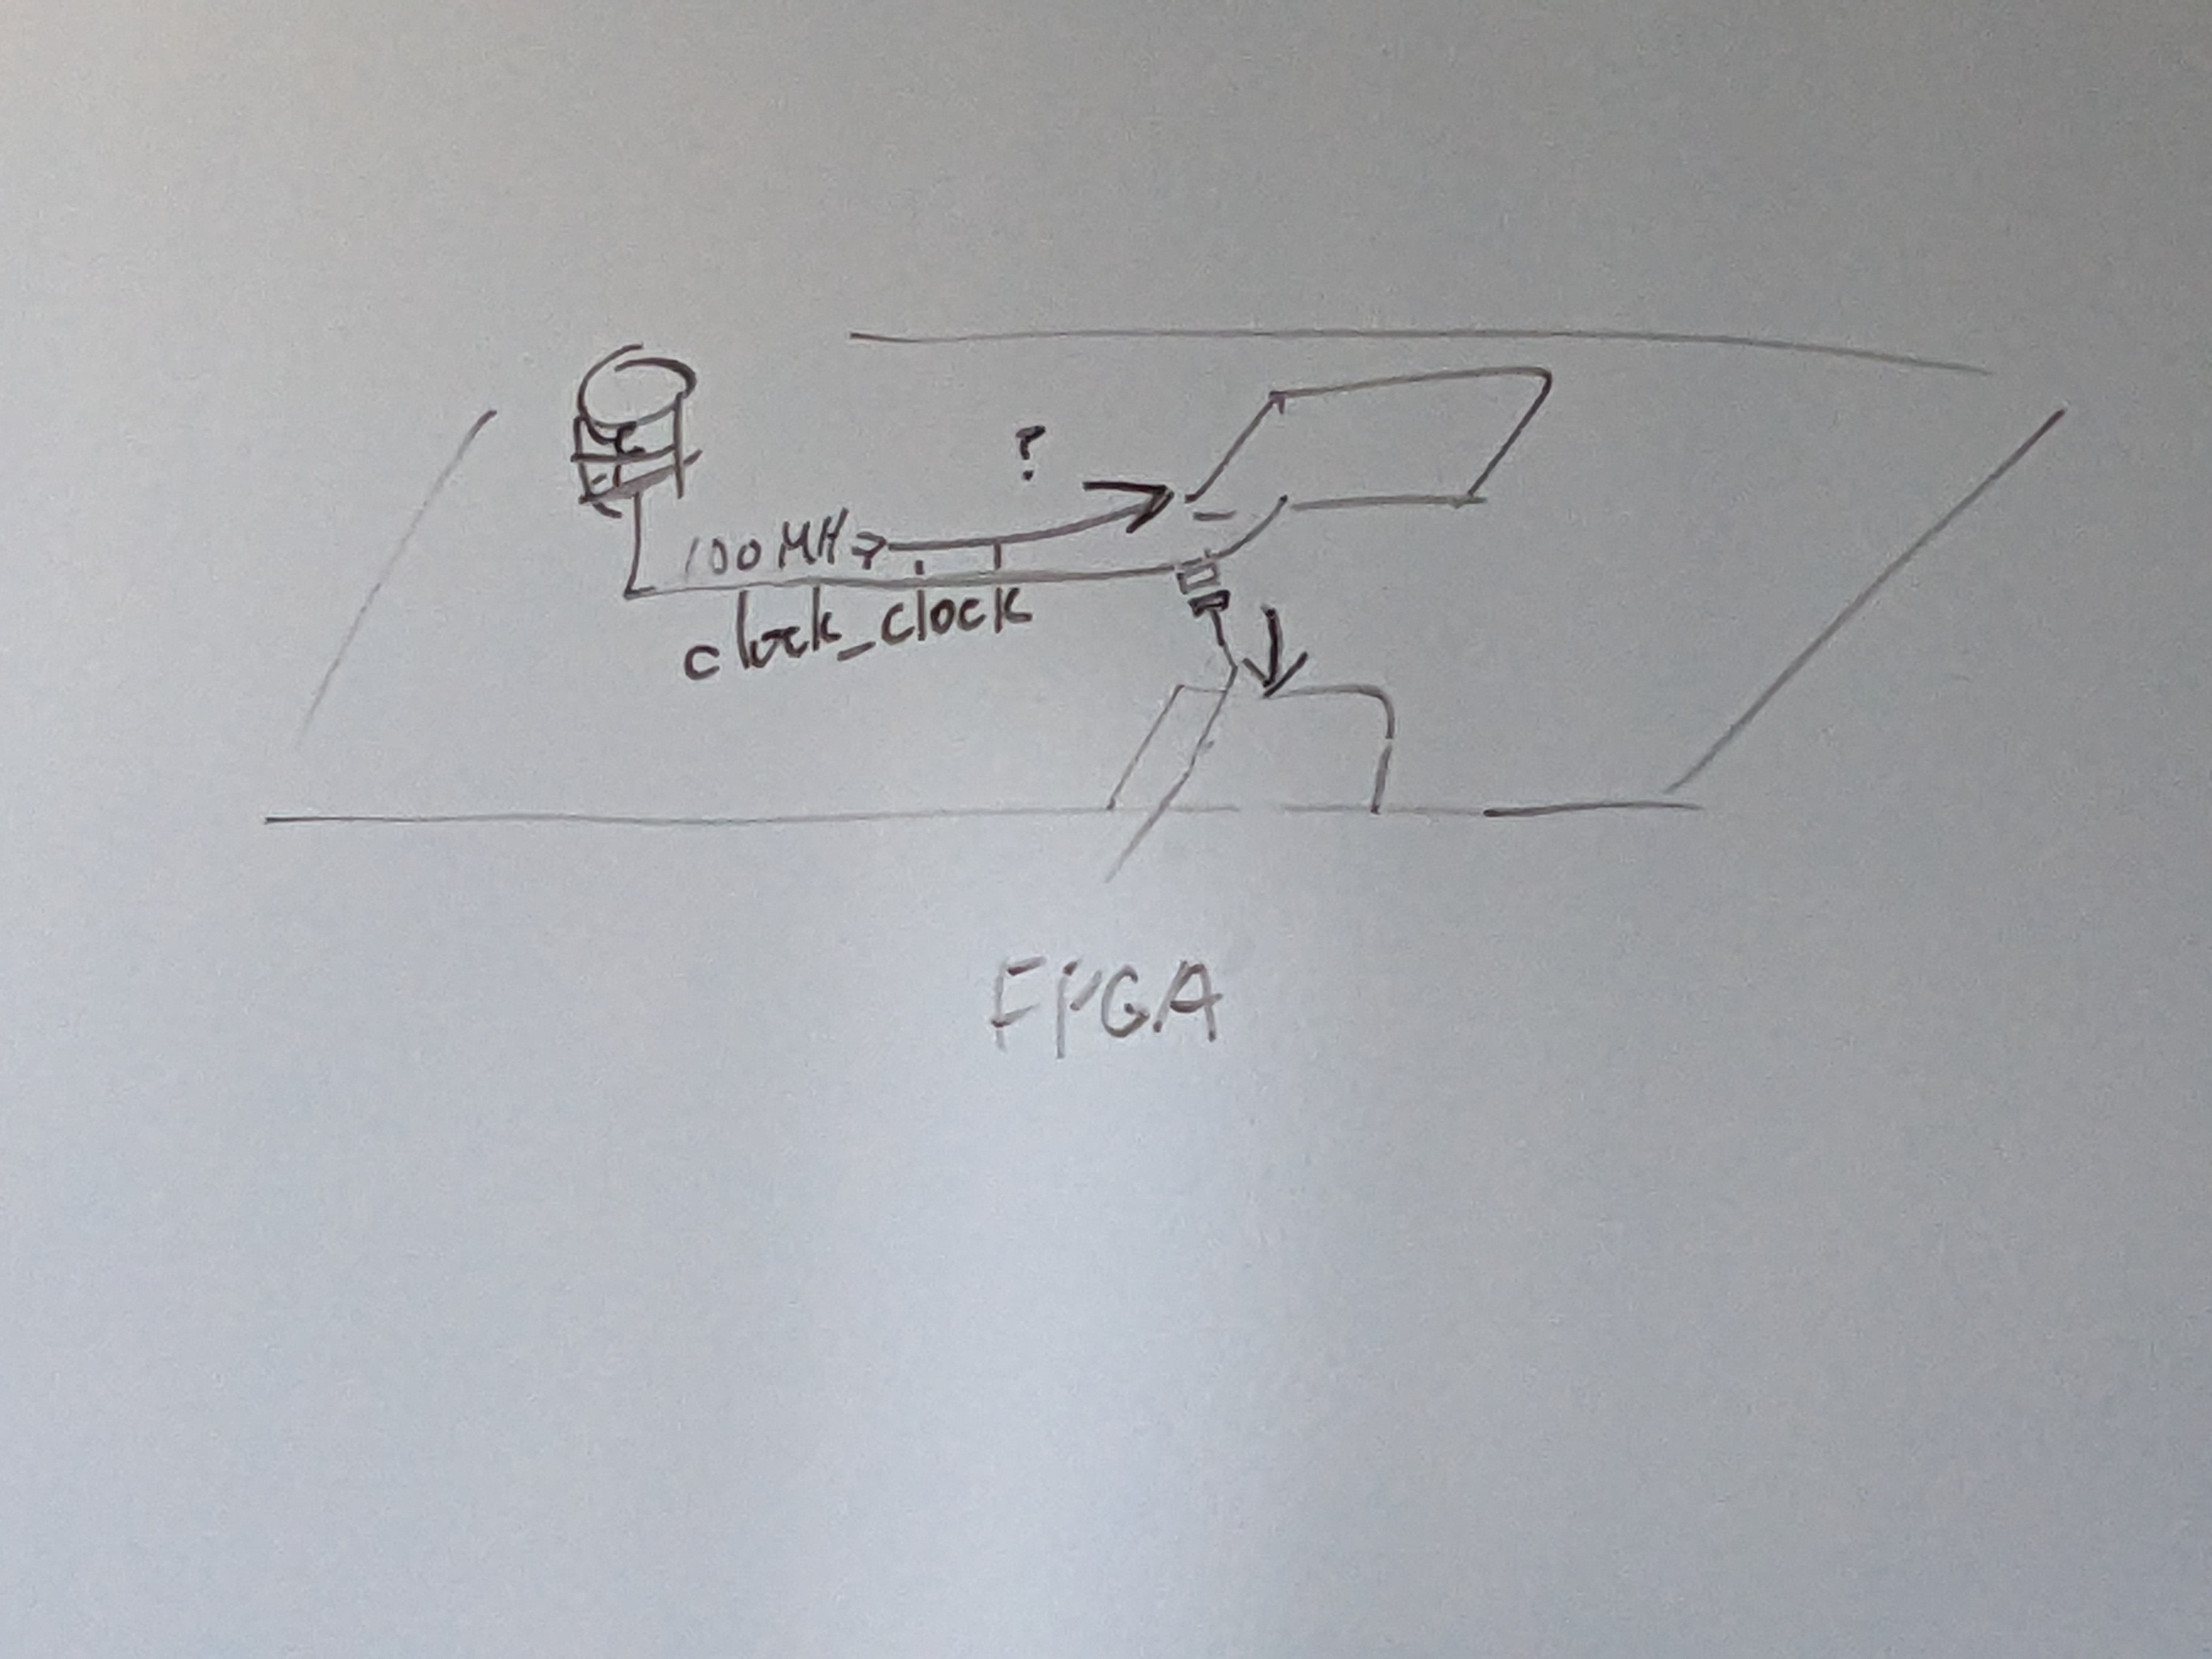 ?
100 MHz
clock_clock
FPGA